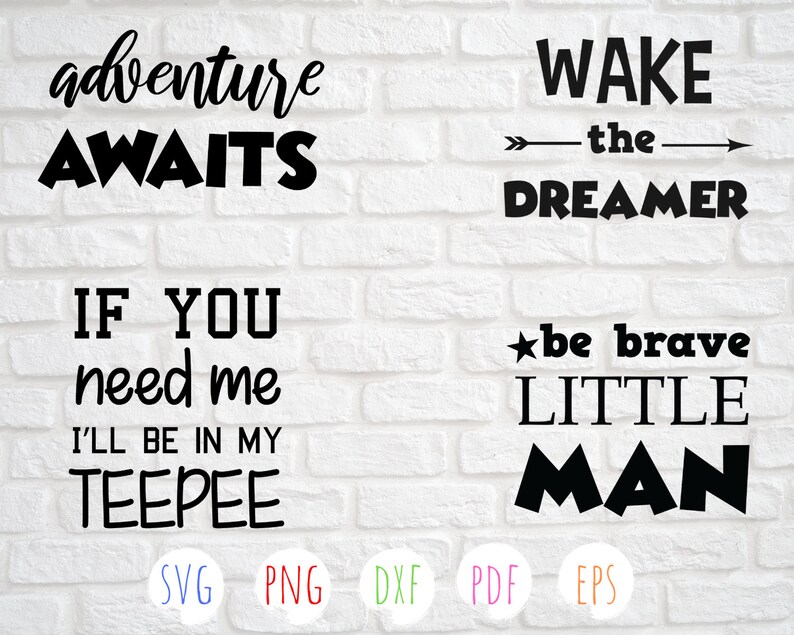 adventure
AWAITS
WAKE
the
DREAMER
IF YOU
need me
I'LL BE IN MY
TEEPEE
be brave
LITTLE
MAN
SVG
PNG
DXF
PDF
EPS